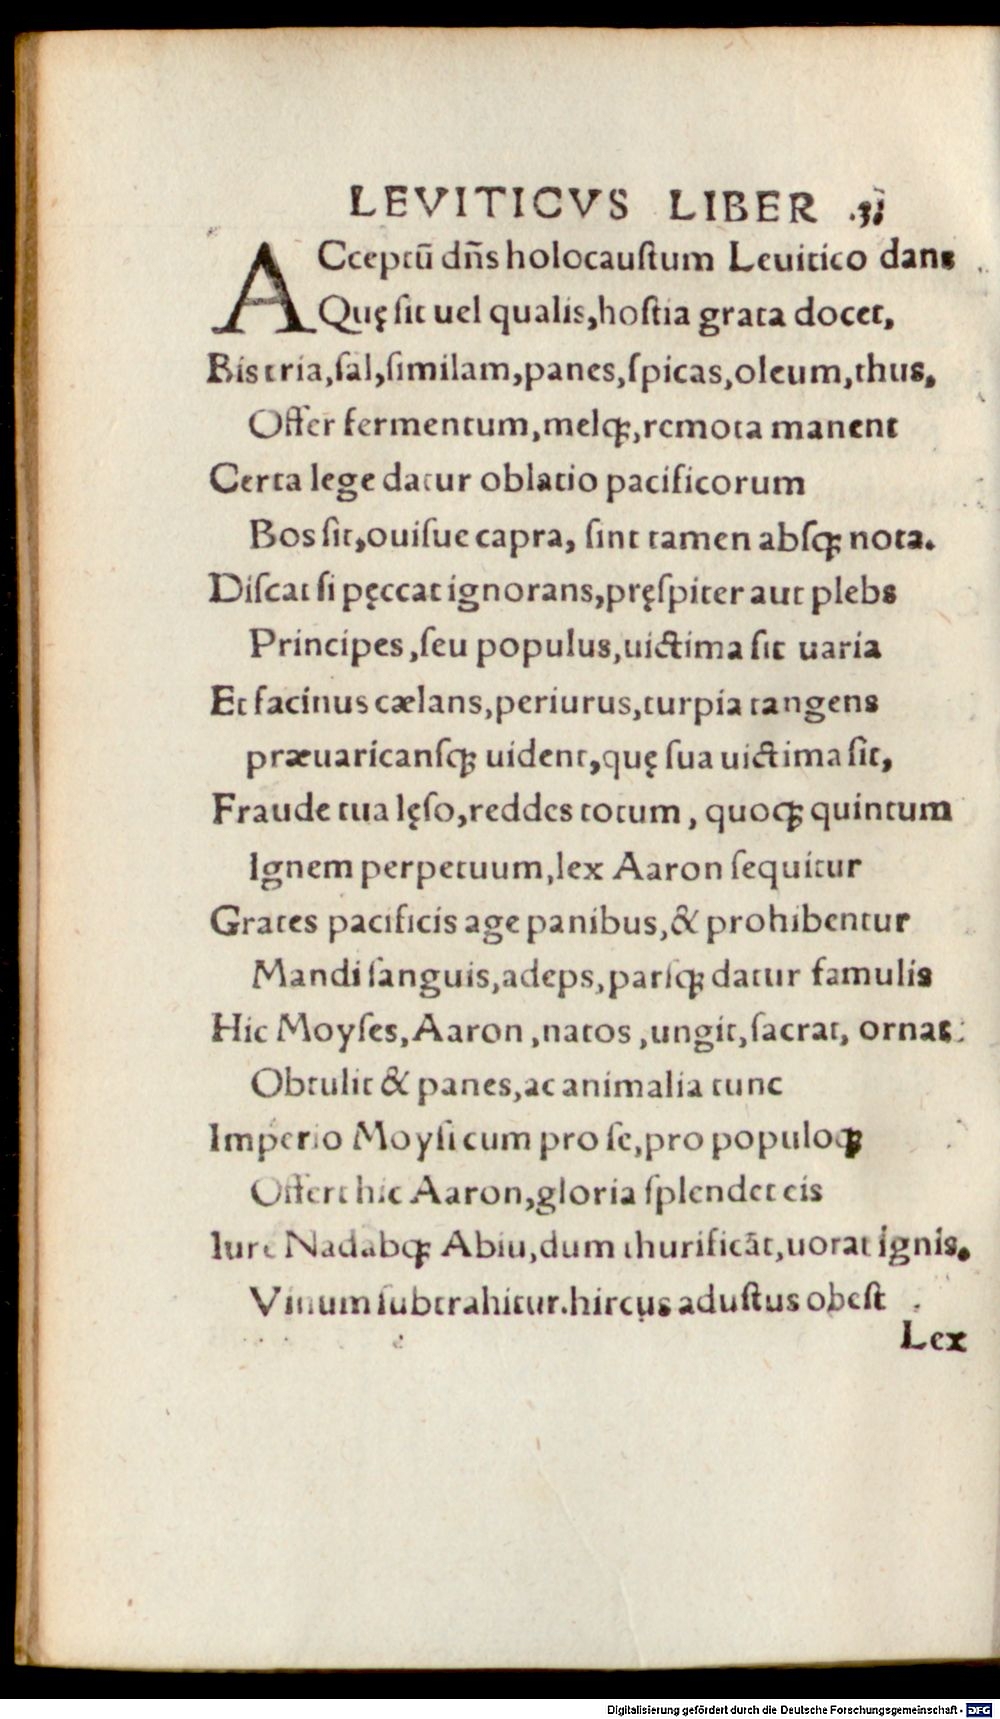 LEVITICVS LIBER .3
ACceptū dn̄s holocauſtum Leuitico dans
Quę ſit uel qualis, hoſtia grata docet,
Bis tria, ſal, ſimilam, panes, ſpicas, oleum, thus,
Offer fermentum, melqꝫ, remota manent
Certa lege datur oblatio pacificorum
Bos ſit, ouiſue capra, ſint tamen abſqꝫ nota.
Diſcat ſi pęccat ignorans, pręſpiter aut plebs
Principes, ſeu populus, uictima ſit uaria
Et facinus cælans, periurus, turpia tangens
præuaricanſqꝫ uident, quę ſua uictima ſit,
Fraude tua lęſo, reddes totum, quoqꝫ quintum
Ignem perpetuum, lex Aaron ſequitur
Grates pacificis age panibus, & prohibentur
Mandi ſanguis, adeps, parſqꝫ datur famulis
Hic Moyſes, Aaron, natos, ungit, ſacrat, ornat:
Obtulit & panes, ac animalia tunc
Imperio Moyſi cum pro ſe, pro populoqꝫ
Offert hic Aaron, gloria ſplendet eis
Iure Nadabqꝫ Abiu, dum thurificāt, uorat ignis.
Vinum ſubtrahitur. hircus aduſtus obeſt
Lex
Digitalisierung gefördert durch die Deutsche Forschungsgemeinschaft - DFG